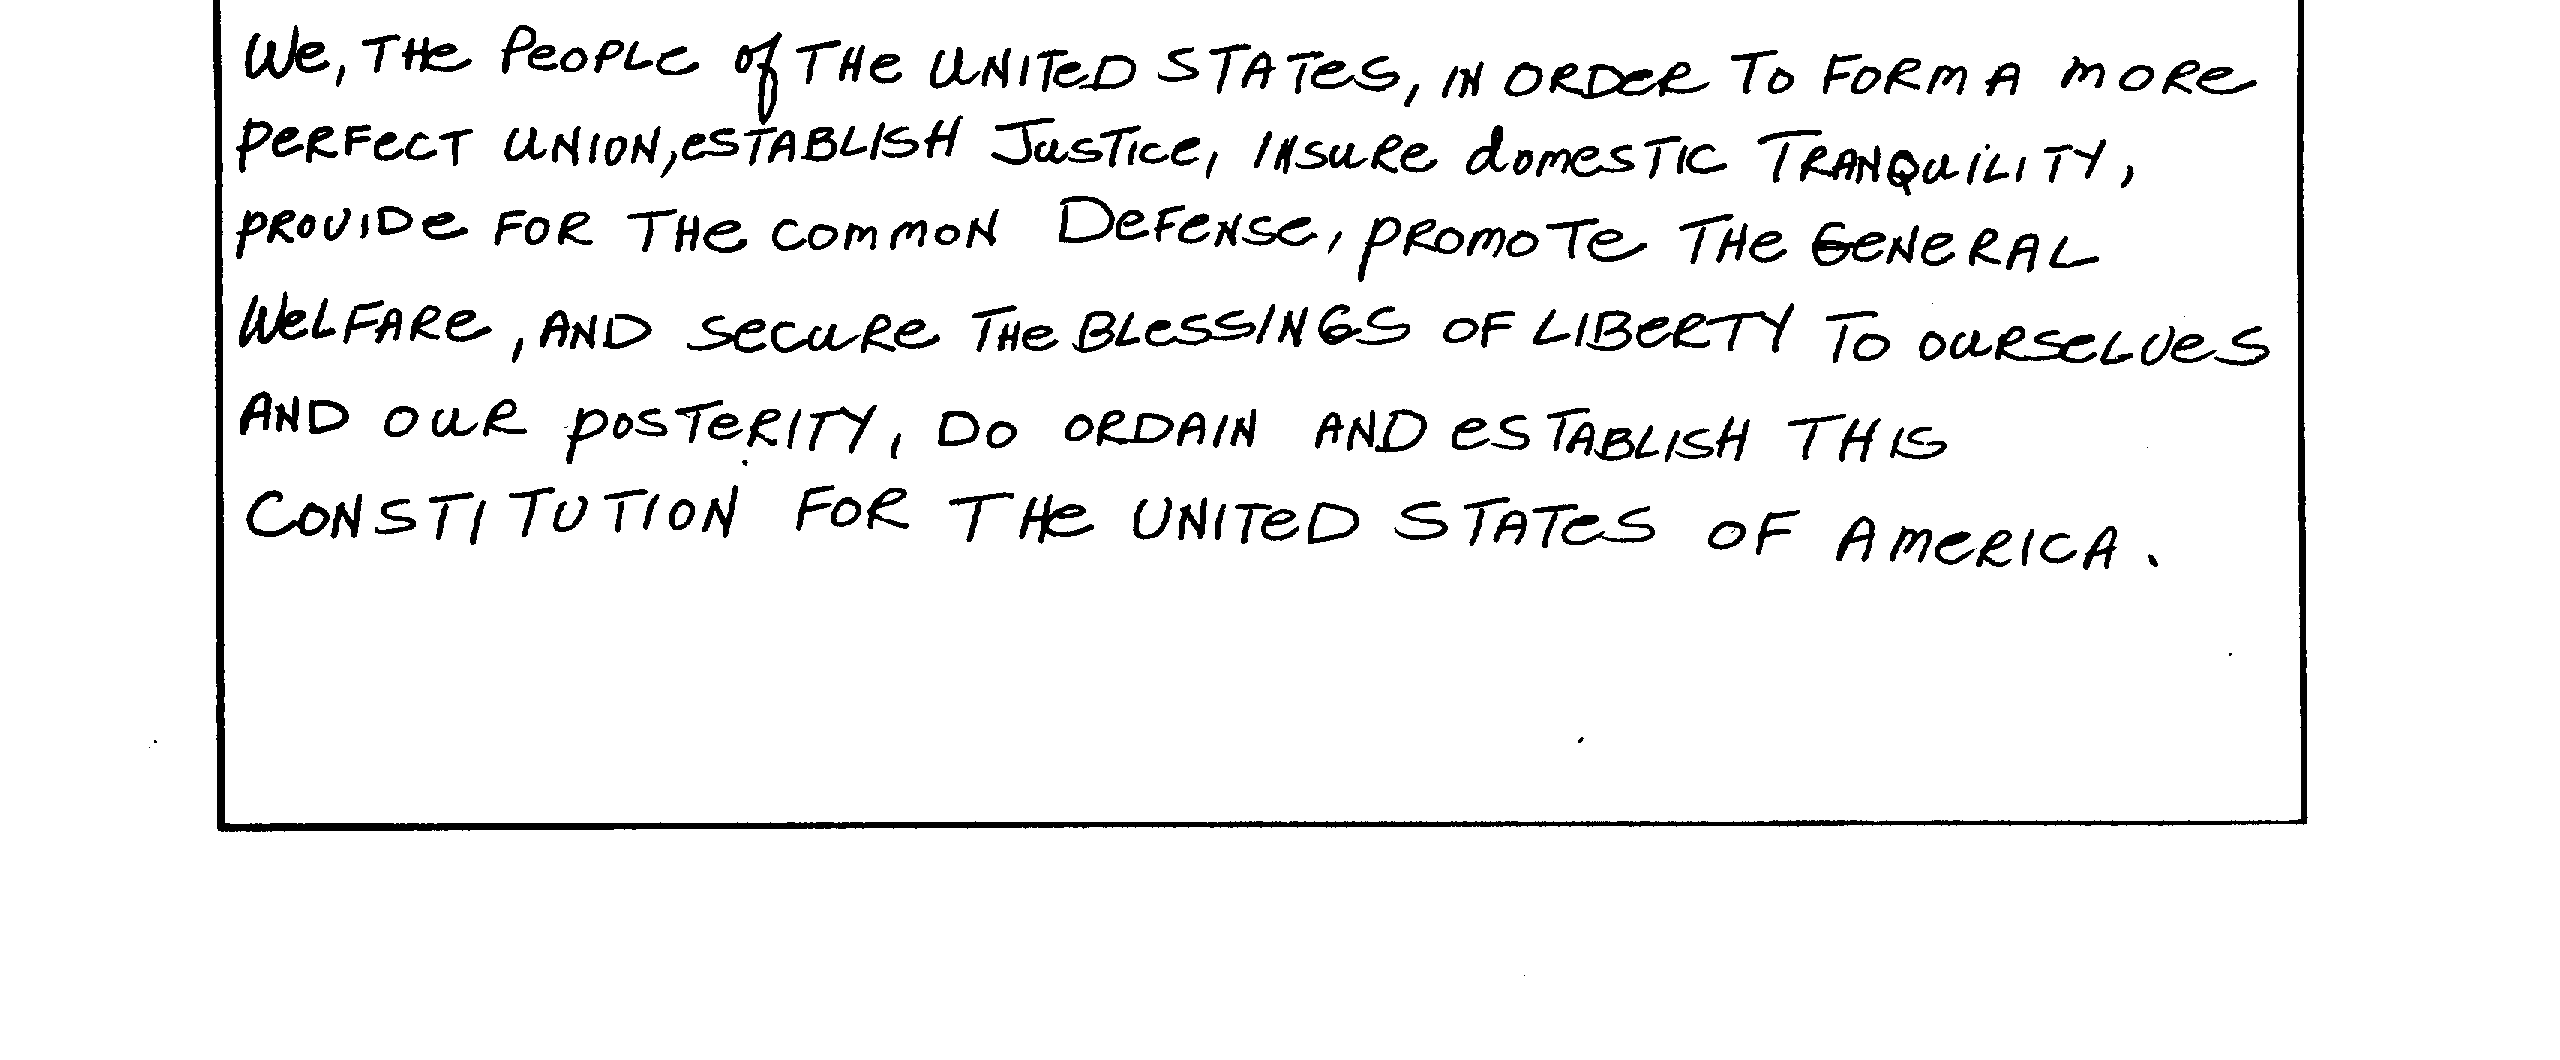 We, THe PeOPLe of THe UNITeD STATeS, IN ORDeR To FORM A MORe
PeRFeCT UNION, eSTABLISH JuSTICe, INSuRe domeSTIC TRANQuiLITY,
PROVIDe FOR THe COMMON DeFeNSe, PROMOTe THe GeNeRAL
WeLFARe, AND SeCuRe THe BLeSSINGS OF LIBeRTY To OuRSeLVeS
AND OuR POSTeRITY, DO ORDAIN AND eSTABLISH THIS
CONSTITUTION FOR THe UNITeD STATeS OF AMeRICA.